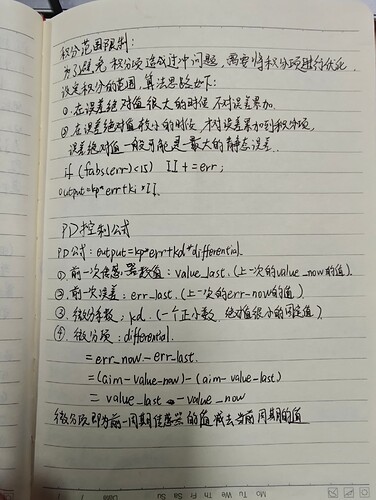 积分范围限制:
为了避免积分项造成过冲问题,需要将积分项进行优化
设定积分的范围,算法思路如下:
①. 在误差绝对值很大的时候 不对误差累加.
②. 在误差绝对值较小的时候, 才对误差累加到积分项,
误差绝对值一般可能是最大的静态误差.
if (fabs(err)<15) II + = err;
output=kp*err+ki*II.
PD控制公式
PD公式: output=kp*err+kd*differential.
①. 前一次传感器数值: value_last. (上一次的value_now的值).
②. 前一次误差: err_last. (上一次的err_now的值).
③. 微分系数: kd. (一个正小数, 绝对值很小的固定值)
④. 微分项: differential.
=err_now-err_last.
=(aim-value_now)-(aim-value_last)
= value_last - value_now
微分项即为前一周期传感器的值 减去当前周期的值
Mo Tu We Th Fr Sa Su
Date